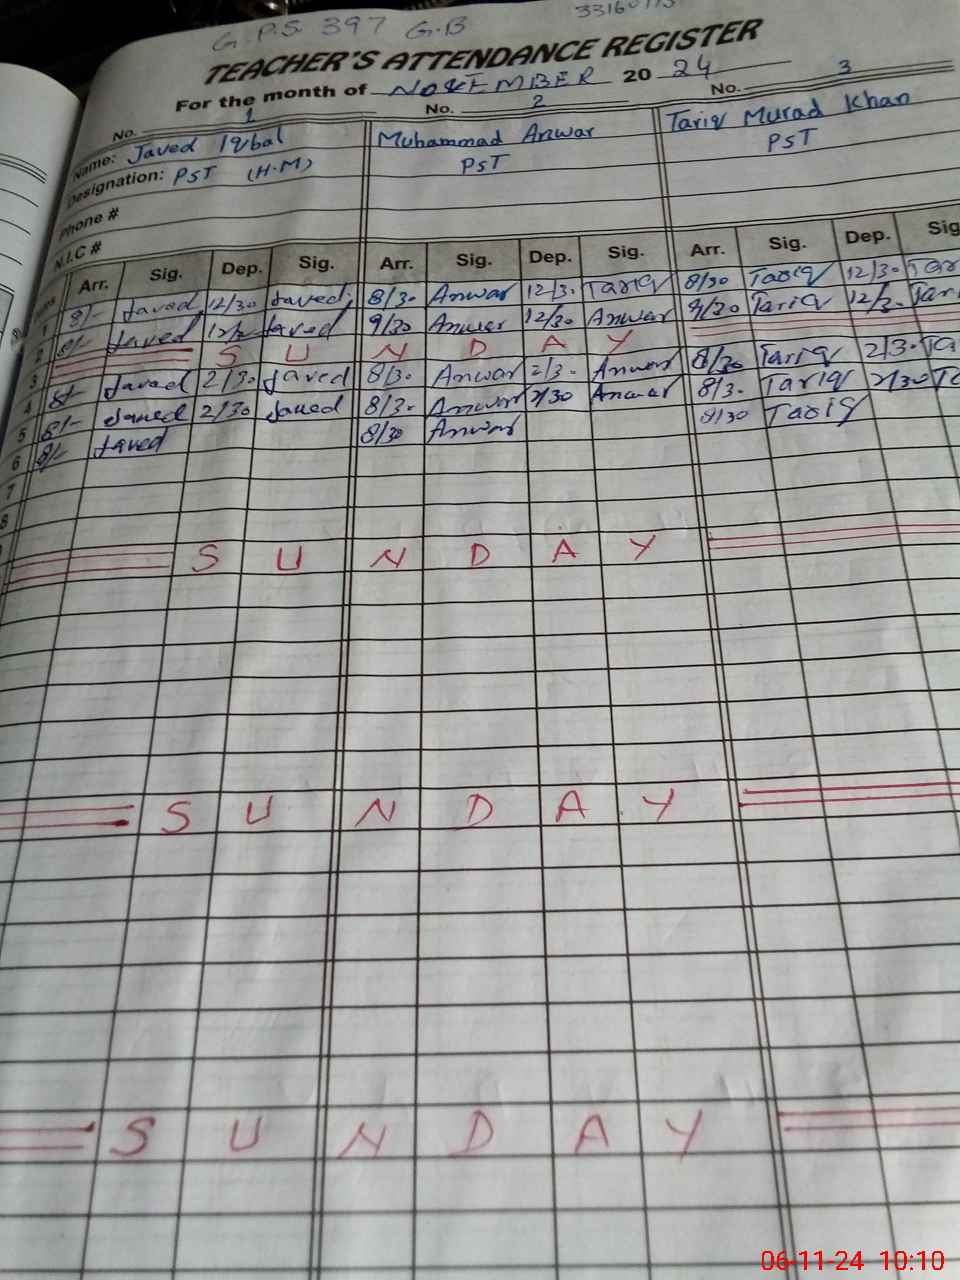 G.P.S. 397 G.B
TEACHER'S ATTENDANCE REGISTER
For the month of NOVEMBER 20 24
No. 1 No. 2 No. 3
Name: Javed Iqbal Muhammad Anwar Tariq Murad Khan
Designation: PST (H.M) PST PST
Phone #
N.I.C #
Arr. Sig. Dep. Sig. Arr. Sig. Dep. Sig. Arr. Sig. Dep. Sig
1 8/- Javed 12/30 Javed 8/30 Anwar 12/30 Tariq 8/30 Tariq 12/30 Tar
2 8/- Javed Javed 9/30 Anwar 12/30 Anwar 9/30 Tariq 12/30 Tari
3 S U N D A Y
4 8/- Javed 2/30 Javed 8/30 Anwar 2/30 Anwar 8/30 Tariq 2/30 Ta
5 8/- Javed 2/30 Javed 8/30 Anwar 2/30 Anwar 8/30 Tariq 2/30 Ta
6 8/- Javed 8/30 Anwar 8/30 Tariq
7
8
S U N D A Y
S U N D A Y
S U N D A Y
06-11-24 10:10